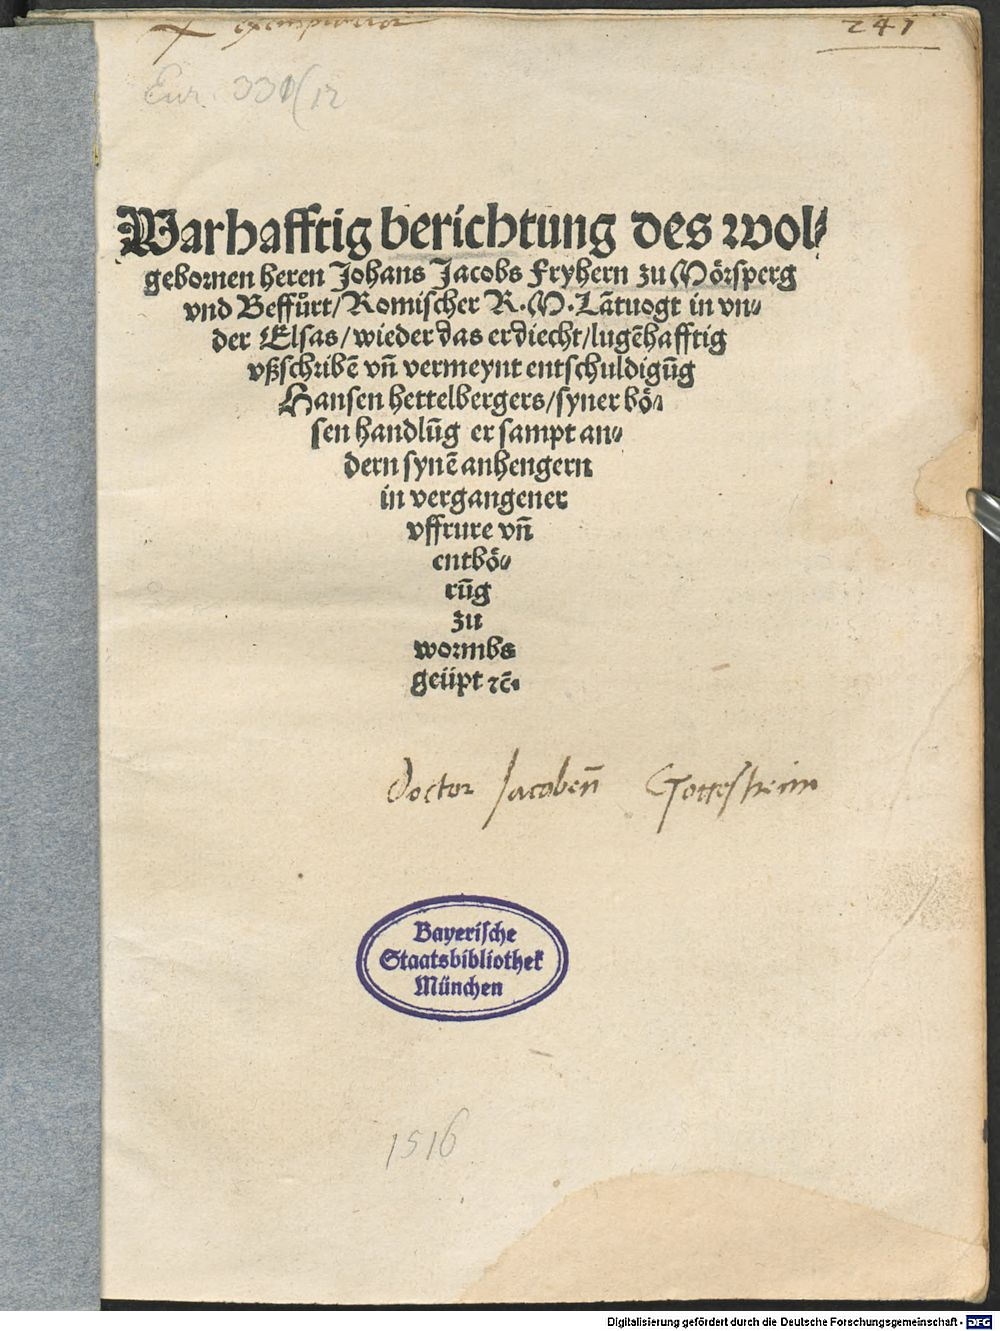 241
Eur. 331(12
Warhafftig berichtung des wol⸗
gebornen heren Johans Jacobs Fryhern zu Mörsperg
vnd Beffůrt/Romischer R.M.Lātuogt in vn⸗
der Elsas/wieder das erdiecht/lugēhafftig
vßschribē vñ vermeynt entschuldigūg
Hansen hettelbergers/syner bö⸗
sen handlūg er sampt an⸗
dern synē anhengern
in vergangener
vffrure vñ
entbö⸗
rūg
zu
wormbs
geüpt ⁊c̄.
Doctor Jacobenn Gottesheim
Bayerische
Staatsbibliothek
München
1516
Digitalisierung gefördert durch die Deutsche Forschungsgemeinschaft - DFG